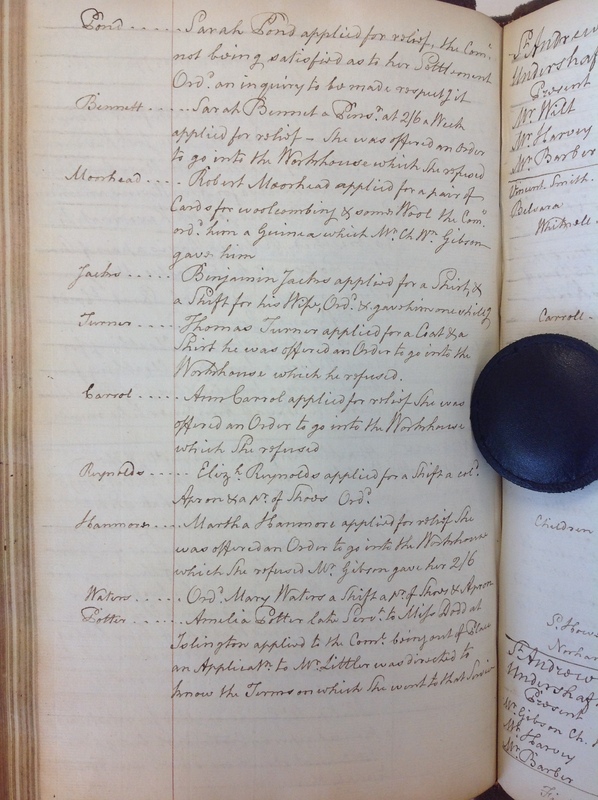 Pond ..... Sarah Pond applied for relief, the Com.
not being satisfied as to her Settlement
Ord. an inquiry to be made respectg it
Bennett ..... Sarah Bennet a Pensr. at 2/6 a Week
applied for relief – She was offered an Order
to go into the Workhouse which She refused
Moorhead .... Robert Moorhead applied for a pair of
Cards for woolcombing & some Wool the Com.
ord. him a Guinea which Mr. Ch. Wn. Gibson
gave him
Jacks ..... Benjamin Jacks applied for a Shirt, &
a Shift for his Wife, Ord. & gave him one shillg
Turner ..... Thomas Turner applied for a Coat & a
Shirt he was offered an Order to go into the
Workhouse which he refused.
Carrol ..... Ann Carrol applied for relief She was
offered an Order to go into the Workhouse
which She refused
Reynolds ..... Elizh. Reynolds applied for a Shift a col.
Apron & a pr. of Shoes Ord.
Hanmore ... Martha Hanmore applied for relief She
was offered an Order to go into the Workhouse
which She refused Mr. Gibson gave her 2/6
Waters ..... Ord. Mary Waters a Shift a pr. of Shoes & Apron
Potter ..... Amelia Potter late Servt. to Miss Dodd at
Islington applied to the Com. being out of Place
an Applicatn. to Mr. Littler was directed to
know the Terms on which She went to that Service
St. Andrew
Undershaf
Present
Mr. Wilt
Mr. Harvey
Mr. Barber
Vincent Smith.
Belvara
Whitnell
Carroll -
Children
St. Andrew
Undershaf
Present
Mr. Gibson Ch.
Mr. Harvey
Mr. Barber